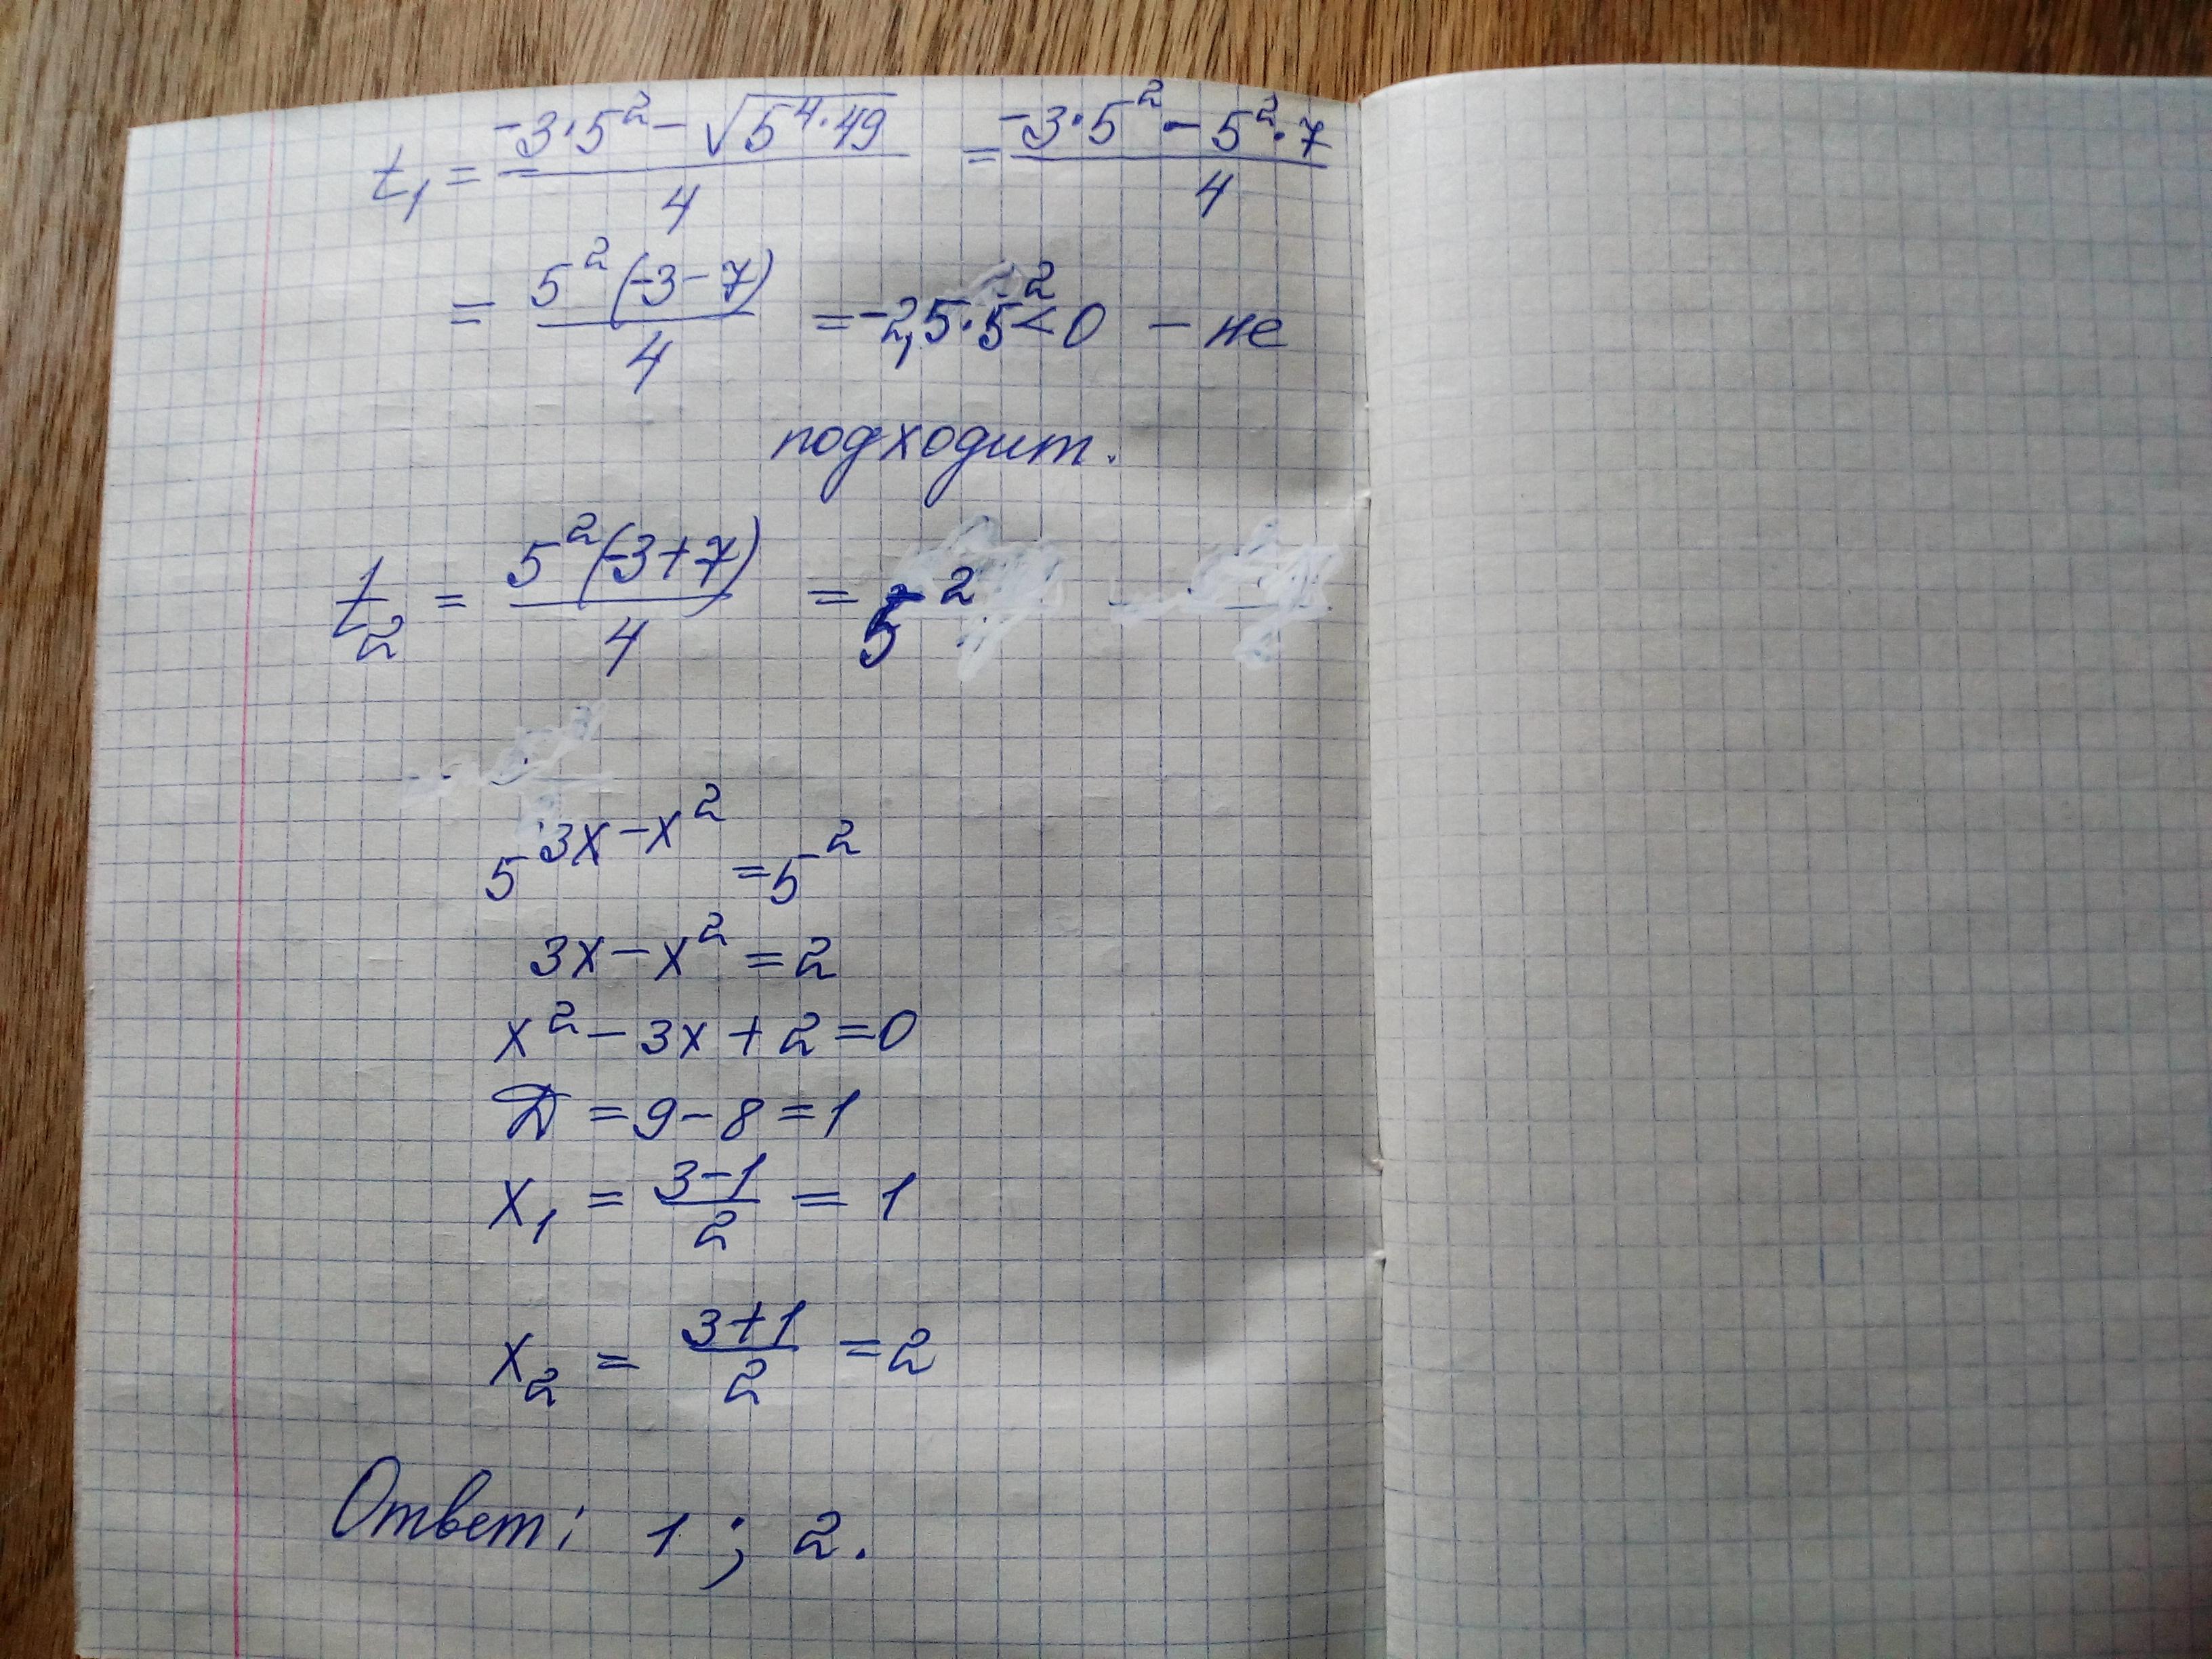 t₁ = (-3·5² - √(5⁴·49))/4 = (-3·5² - 5²·7)/4
= 5²(-3-7)/4 = -2,5·5² < 0 - не
подходит.
t₂ = 5²(-3+7)/4 = 5²
5^(3x-x²) = 5²
3x - x² = 2
x² - 3x + 2 = 0
D = 9 - 8 = 1
x₁ = (3-1)/2 = 1
x₂ = (3+1)/2 = 2
Ответ: 1 ; 2.